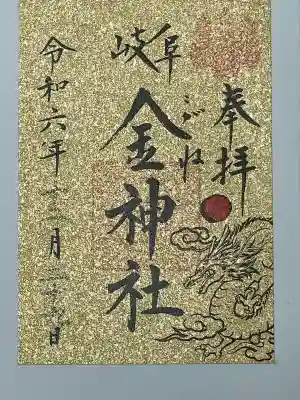 奉拝
岐阜
こがね
金神社
令和六年 月 日